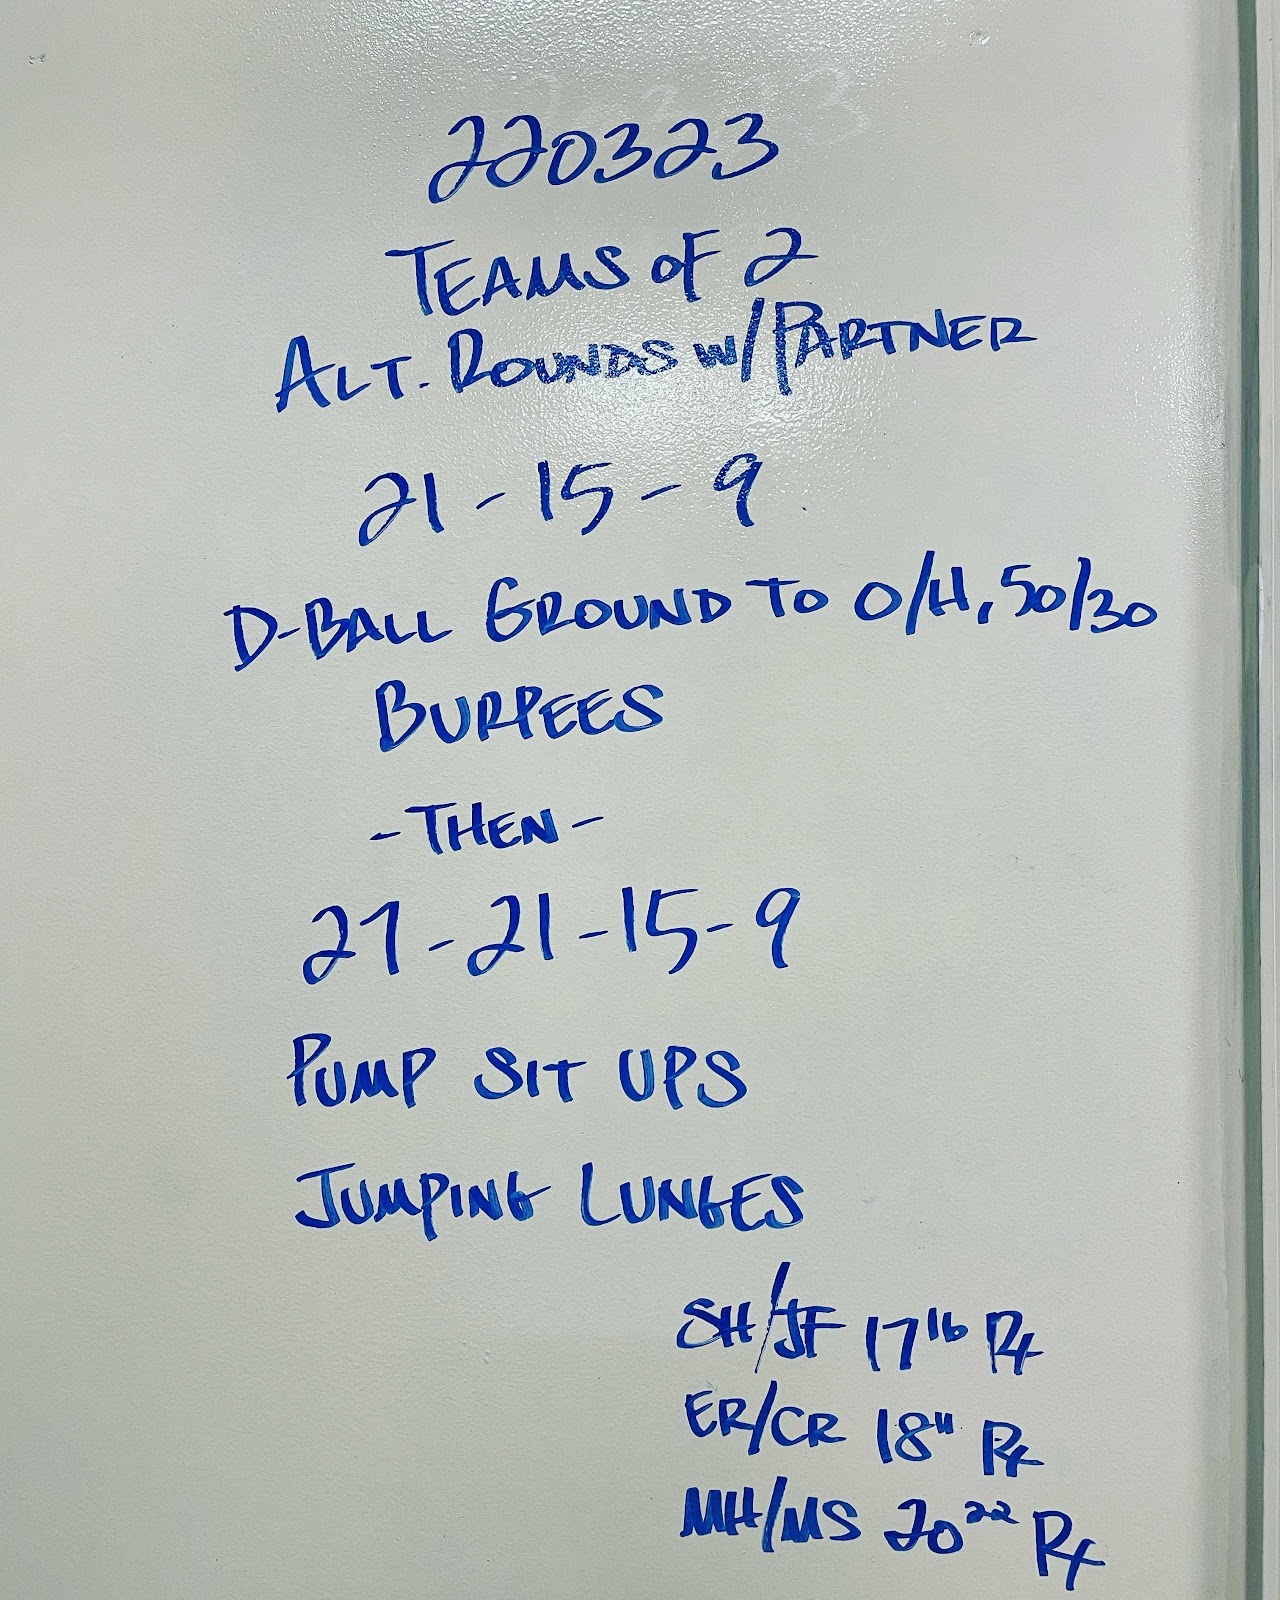 220323
TEAMS OF 2
ALT. ROUNDS W/PARTNER
21-15-9
D-BALL GROUND TO O/H, 50/30
BURPEES
-THEN-
27-21-15-9
PUMP SIT UPS
JUMPING LUNGES
SH/JF 17 16 Rx
ER/CR 18 11 Rx
MH/MS 20 22 Rx